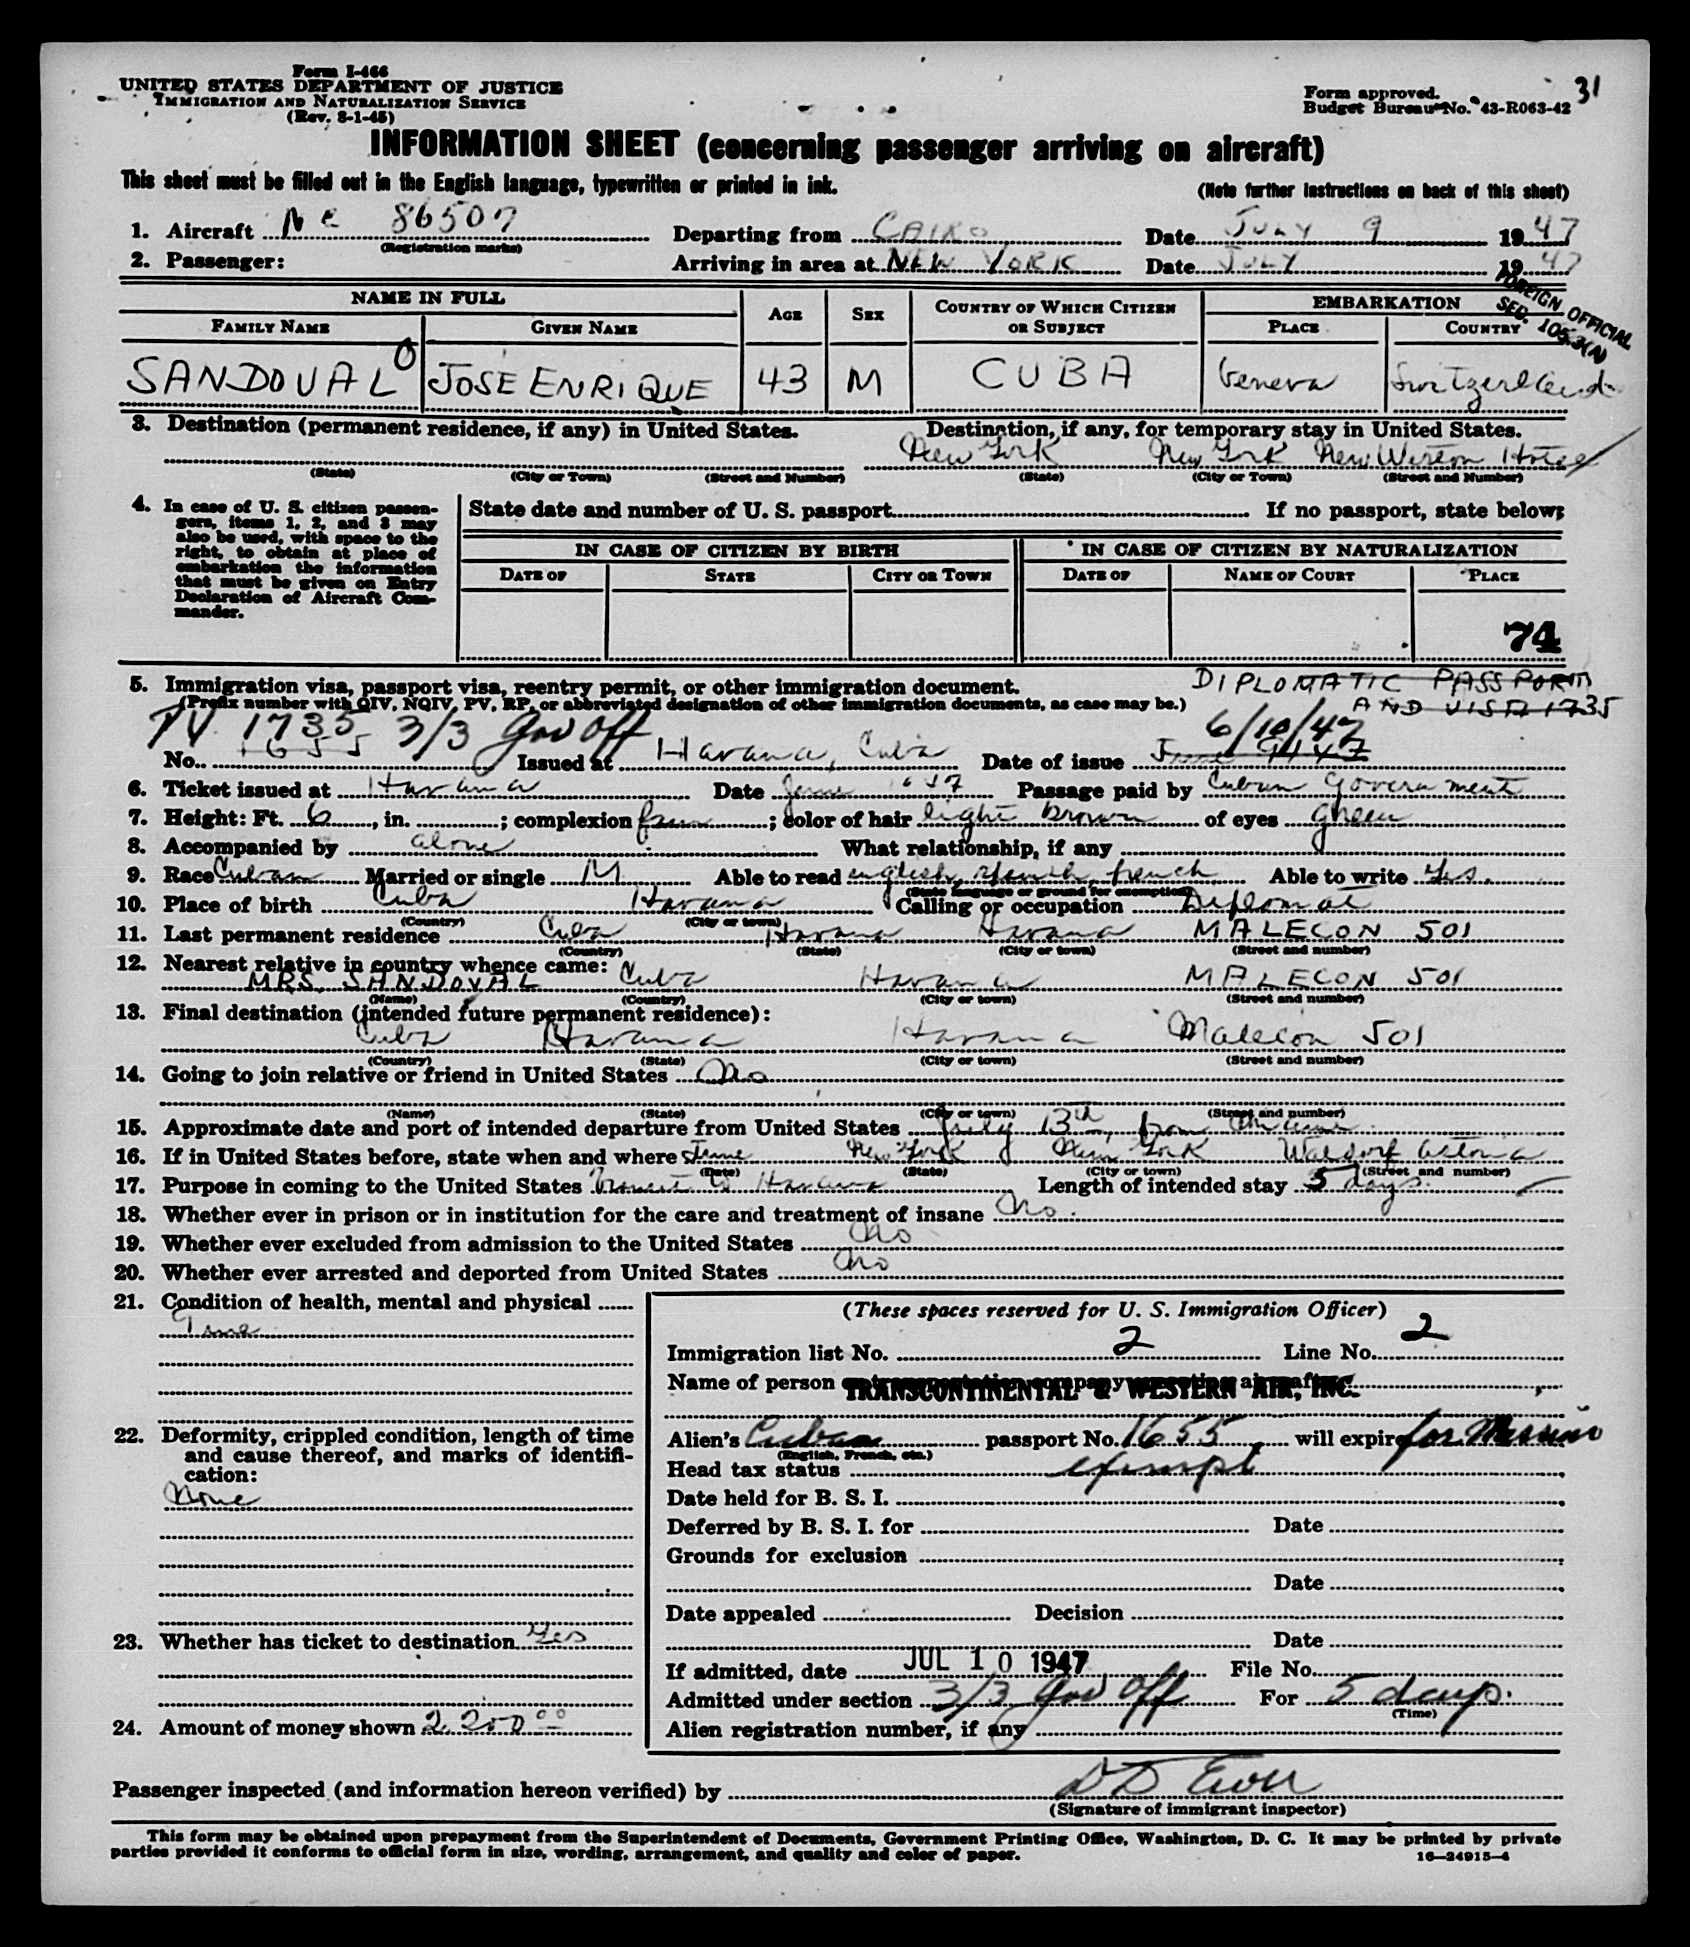 Form I-466
UNITED STATES DEPARTMENT OF JUSTICE
IMMIGRATION AND NATURALIZATION SERVICE
(Rev. 8-1-45)
Form approved.
Budget Bureau No. 43-R063-42
31
INFORMATION SHEET (concerning passenger arriving on aircraft)
This sheet must be filled out in the English language, typewritten or printed in ink.
(Note further instructions on back of this sheet)
1. Aircraft NC 86507 Departing from CAIRO Date JULY 9 1947
(Registration marks)
2. Passenger: Arriving in area at NEW YORK Date JULY 1947
FOREIGN OFFICIAL
SEC. 105.3(A)
NAME IN FULL AGE SEX COUNTRY OF WHICH CITIZEN OR SUBJECT EMBARKATION
FAMILY NAME GIVEN NAME PLACE COUNTRY
SANDOVAL JOSE ENRIQUE 43 M CUBA Geneva Switzerland
3. Destination (permanent residence, if any) in United States. Destination, if any, for temporary stay in United States.
New York New York New Weston Hotel
(State) (City or Town) (Street and Number) (State) (City or Town) (Street and Number)
4. In case of U. S. citizen passengers, items 1, 2, and 3 may also be used, with space to the right, to obtain at place of embarkation the information that must be given on Entry Declaration of Aircraft Commander.
State date and number of U. S. passport If no passport, state below:
IN CASE OF CITIZEN BY BIRTH IN CASE OF CITIZEN BY NATURALIZATION
DATE OF STATE CITY OR TOWN DATE OF NAME OF COURT PLACE
74
5. Immigration visa, passport visa, reentry permit, or other immigration document. DIPLOMATIC PASSPORT
(Prefix number with QIV, NQIV, PV, RP, or abbreviated designation of other immigration documents, as case may be.) AND VISA 1735
PV 1735 3/3 Gov Off 6/10/47
No. 1655 Issued at Havana, Cuba Date of issue June 9 1947
6. Ticket issued at Havana Date June Passage paid by Cuban Government
7. Height: Ft. 6, in. ; complexion ; color of hair light brown of eyes green
8. Accompanied by alone What relationship, if any
9. Race Cuban Married or single M Able to read english, spanish, french Able to write Yes.
(State language or ground for exemption)
10. Place of birth Cuba Havana Calling or occupation Diplomat
(Country) (City or town)
11. Last permanent residence Cuba Havana Havana MALECON 501
(Country) (State) (City or town) (Street and number)
12. Nearest relative in country whence came:
MRS. SANDOVAL Cuba Havana MALECON 501
(Name) (Country) (City or town) (Street and number)
13. Final destination (intended future permanent residence):
Cuba Havana Havana Malecon 501
(Country) (State) (City or town) (Street and number)
14. Going to join relative or friend in United States No
(Name) (State) (City or town) (Street and number)
15. Approximate date and port of intended departure from United States July 13th, from Miami
16. If in United States before, state when and where June New York New York Waldorf Astoria
(Date) (State) (City or town) (Street and number)
17. Purpose in coming to the United States Transit to Havana Length of intended stay 5 days.
18. Whether ever in prison or in institution for the care and treatment of insane No.
19. Whether ever excluded from admission to the United States No
20. Whether ever arrested and deported from United States No
21. Condition of health, mental and physical
22. Deformity, crippled condition, length of time and cause thereof, and marks of identification:
None
23. Whether has ticket to destination Yes
24. Amount of money shown 2,200.00
(These spaces reserved for U. S. Immigration Officer)
Immigration list No. 2 Line No. 2
Name of person or transportation company operating aircraft
TRANSCONTINENTAL & WESTERN AIR, INC.
Alien's Cuban passport No. 1655 will expire for Mission
(English, French, etc.)
Head tax status exempt
Date held for B. S. I.
Deferred by B. S. I. for Date
Grounds for exclusion
Date
Date appealed Decision
Date
If admitted, date JUL 10 1947 File No.
Admitted under section 3/3 Gov Off For 5 days.
(Time)
Alien registration number, if any
Passenger inspected (and information hereon verified) by
(Signature of immigrant inspector)
This form may be obtained upon prepayment from the Superintendent of Documents, Government Printing Office, Washington, D. C. It may be printed by private
parties provided it conforms to official form in size, wording, arrangement, and quality and color of paper.
16—24915-4